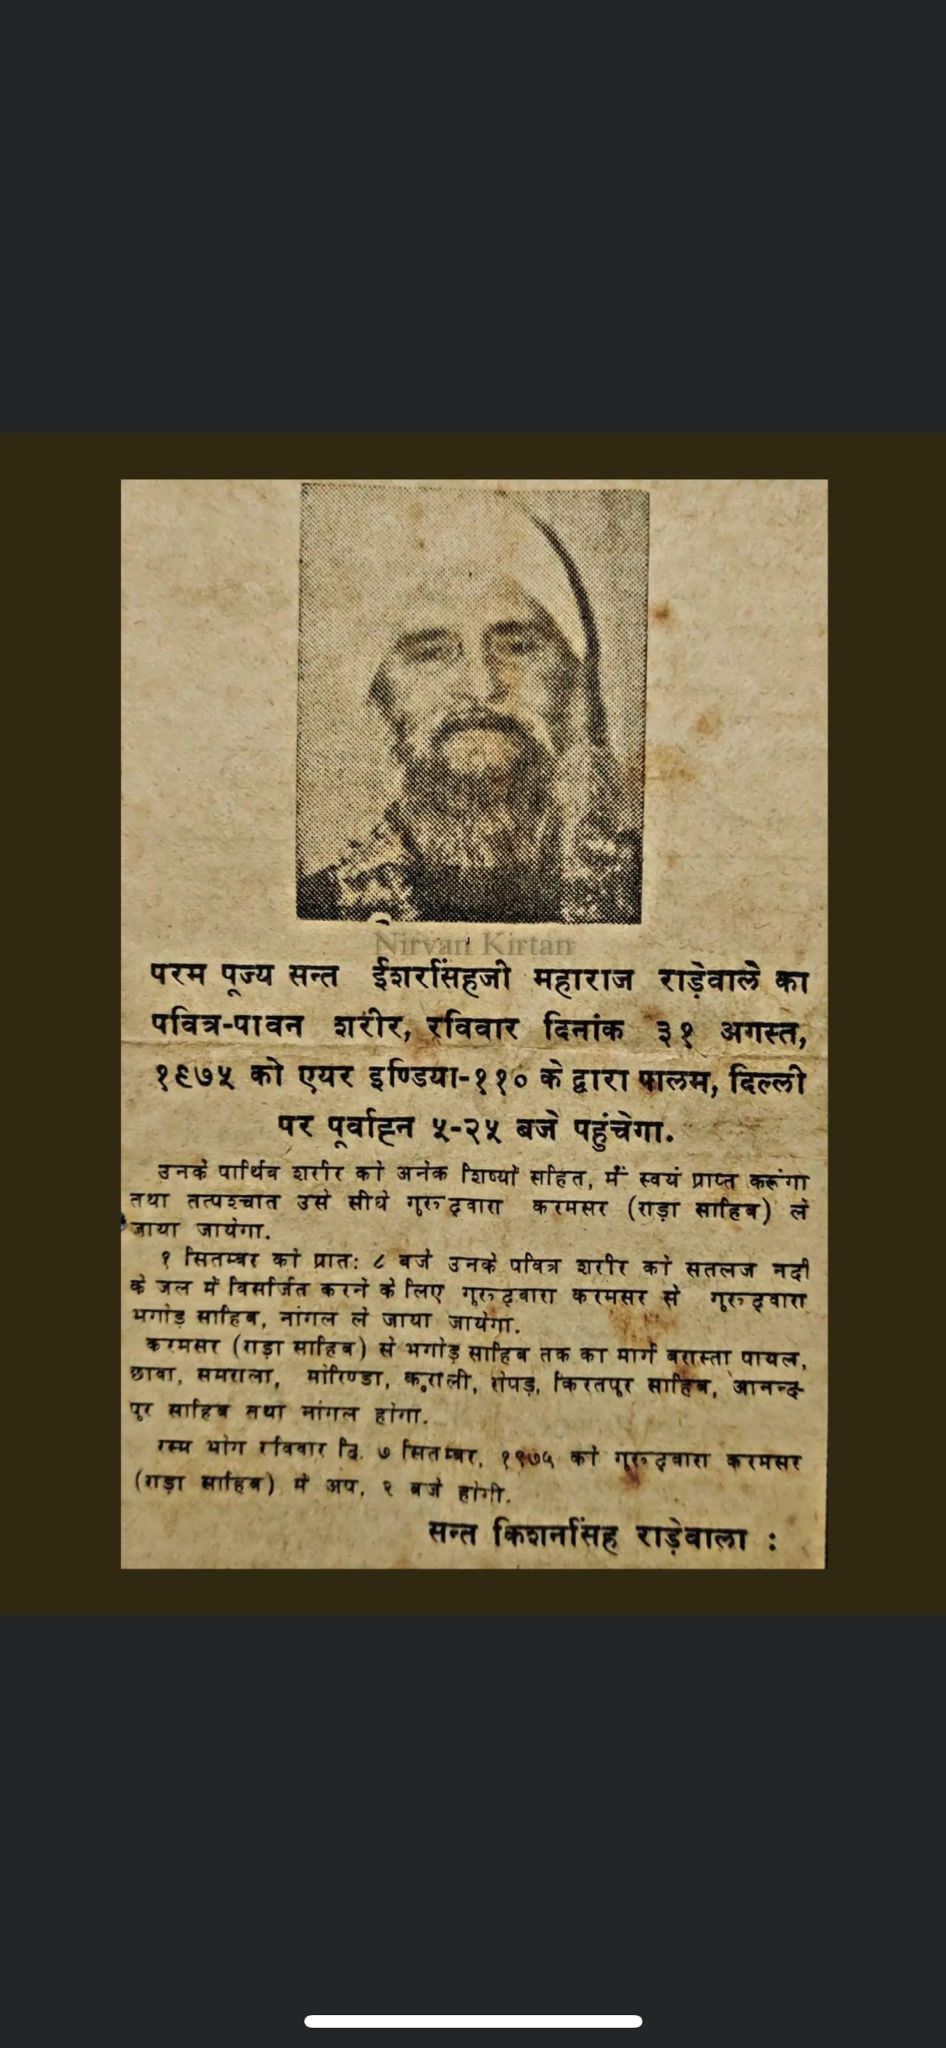 Nirvan Kirtan
परम पूज्य सन्त ईशरसिंहजी महाराज राड़ेवाले का
पवित्र-पावन शरीर, रविवार दिनांक ३१ अगस्त,
१९७५ को एयर इण्डिया-११० के द्वारा पालम, दिल्ली
पर पूर्वाह्न ५-२५ बजे पहुंचेगा.
उनके पार्थिव शरीर को अनेक शिष्यों सहित, मैं स्वयं प्राप्त करूंगा
तथा तत्पश्चात उसे सीधे गुरुद्वारा करमसर (राड़ा साहिब) ले
जाया जायेगा.
१ सितम्बर को प्रात: ८ बजे उनके पवित्र शरीर को सतलज नदी
के जल में विसर्जित करने के लिए गुरुद्वारा करमसर से गुरुद्वारा
भगोड़ साहिब, नांगल ले जाया जायेगा.
करमसर (राड़ा साहिब) से भगोड़ साहिब तक का मार्ग बरास्ता पायल,
छावा, समराला, मोरिण्डा, कुराली, रोपड़, किरतपुर साहिब, आनन्द-
पुर साहिब तथा नांगल होगा.
रस्म भोग रविवार दि. ७ सितम्बर, १९७५ को गुरुद्वारा करमसर
(राड़ा साहिब) में अप. २ बजे होगी.
सन्त किशनसिंह राड़ेवाला :